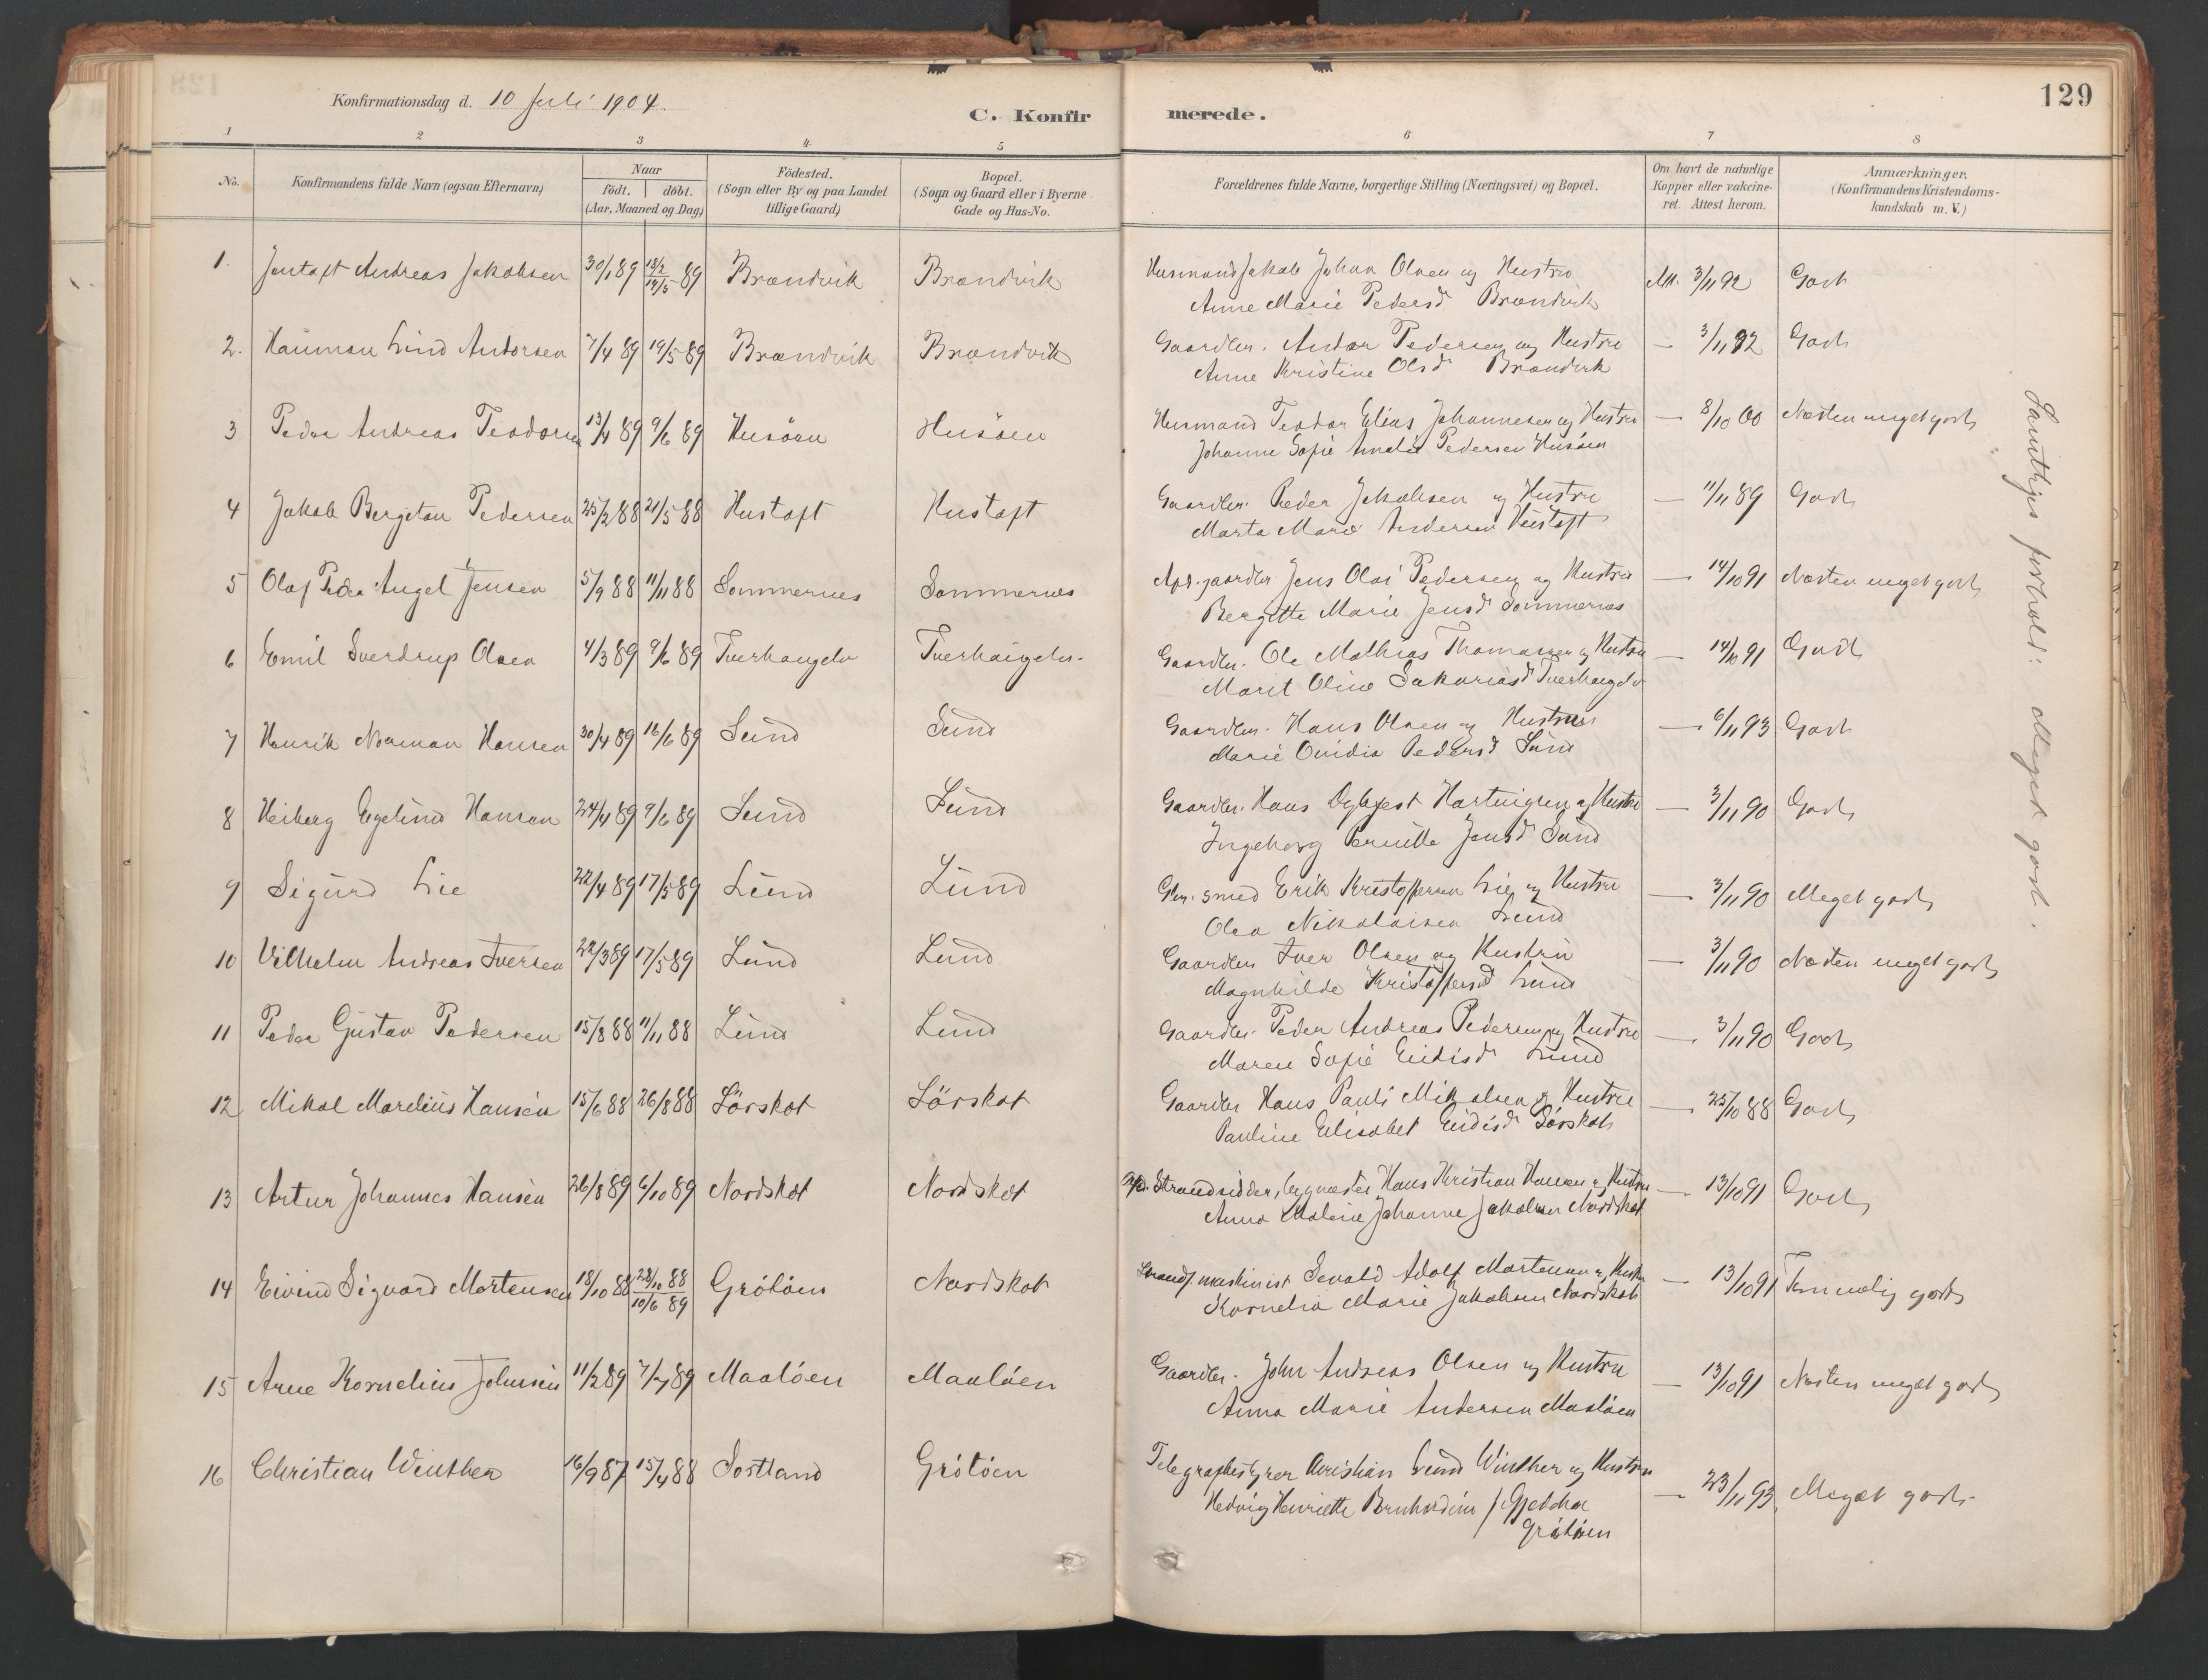 129
Konfirmationsdag d. 10 Juli 1904.
C. Konfirmerede.
1 2 3 4 5 6 7 8
No.
Konfirmandens fulde Navn (ogsaa Efternavn)
Naar
födt. döbt.
(Aar, Maaned og Dag)
Födested.
(Sogn eller By og paa Landet
tillige Gaard)
Bopæl.
(Sogn og Gaard eller i Byerne
Gade og Hus-No.
Forældrenes fulde Navne, borgerlige Stilling (Næringsvei) og Bopæl.
Om havt de naturlige
Kopper eller vakcine-
ret. Attest herom.
Anmærkninger.
(Konfirmandens Kristendoms-
kundskab m. V.)
1. Jentoft Andreas Jakobsen 30/1 89 18/2 89 Brændvik Brændvik Husmand Jakob Johan Olsen og Hustru 3/11 92 Godt
Anne Marie Pedersd Brændvik
2. Lind Andorsen 7/4 89 19/5 89 Brændvik Brændvik Gaardbr. Andor Pedersen og Hustru — 3/11 92 Godt
Anne Kristine Olsd Brændvik
3 Peder Andreas Teodorsen 13/4 89 9/6 89 Husöen Husöen Husmand Teodor Elias Johannesen og Hustru — 8/10 00 Næsten meget godt
Johanne Sofie Amalie Pedersen Husöen
4 Jakob Bergeton Pedersen 25/2 88 21/5 88 Hustoft Hustoft Gaardbr. Peder Jakobsen og Hustru — 11/11 89 Godt
Marta Marie Andersen Hustoft
5 Olaf Peder Angel Jensen 5/9 88 11/11 88 Sommernes Sommernes Jens Olai Pedersen og Hustru — 14/10 91 Næsten meget godt
Bergitte Marie Jensd Sommernes
6 Emil Sverdrup Olsen 4/3 89 9/6 89 Tverhaugelv Gaardbr. Ole Mathias Thomassen og Hustru — 14/10 91 Godt
Marit Oline Sakariasd
7 Henrik Norman Hansen 30/4 89 16/6 89 Sund Sund Gaardbr. Hans Olsen og Hustru — 6/11 93 Godt
Marie Ovidia Pedersd Sund
8 Heiberg Egelund Hansen 24/4 89 9/6 89 Sund Sund Gaardbr. Hans Dybfest Hartvigsen og Hustru — 3/11 90 Godt
Ingeborg Pernille Jensd Sund
9 Sigurd Lie 22/4 89 17/5 89 Lund Lund smed Erik Kristoffersen Lie og Hustru — 3/11 90 Meget godt
Olea Nikolaisen Lund
10 Vilhelm Andreas Iversen 22/3 89 17/5 89 Lund Lund Gaardbr. Iver Olsen og Hustru — 3/11 90 Næsten meget godt
Magnhilde Kristoffersd Lund
11 Peder Gustav Pedersen 15/8 88 11/11 88 Lund Lund Gaardbr. Peder Andreas Pedersen og Hustru — 3/11 90 Godt
Maren Sofie Eidisd Lund
12 Mikal Mardius Hansen 15/6 88 26/8 88 Sörskot Sörskot Gaardbr Hans Pauli Mikalsen og Hustru — 25/10 88 Godt
Pauline Elisabet Eidisd Sörskot
13 Artur Johannes Hansen 26/8 89 6/10 89 Nordskot Nordskot Strandsidder, bygmester Hans Kristian Hansen og Hustru — 13/10 91 Godt
Anna Malene Johanne Jakobsen Nordskot
14 Eivind Sigvard Mortensen 18/10 88 28/10 88 10/6 89 Grötöen Nordskot maskinist Sevald Adolf Mortensen og Hustru — 13/10 91 Temmelig godt
Kornelia Marie Jakobsen Nordskot
15 Arne Kornelius Johnsen 11/2 89 7/7 89 Maalöen Maalöen Gaardbr. John Andreas Olsen og Hustru — 13/10 91 Næsten meget godt
Anna Marie Andersen Maalöen
16 Christian Winther 16/9 87 15/4 88 Sortland Grötöen Telegrafbestyrer Christian Lund Winther og Hustru — 23/11 93 Meget godt
Hedvig Henriette
Grötöen
Samtliges forhold: Meget godt.